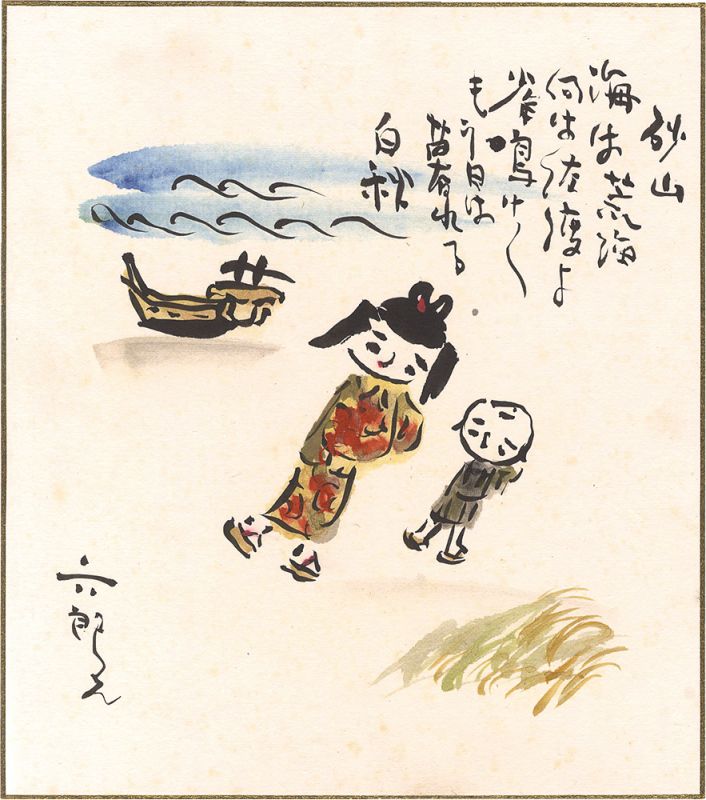 砂山
海は荒海
向は佐渡よ
雀鳴け〱
もう日は
暮れる
白秋
六郎え